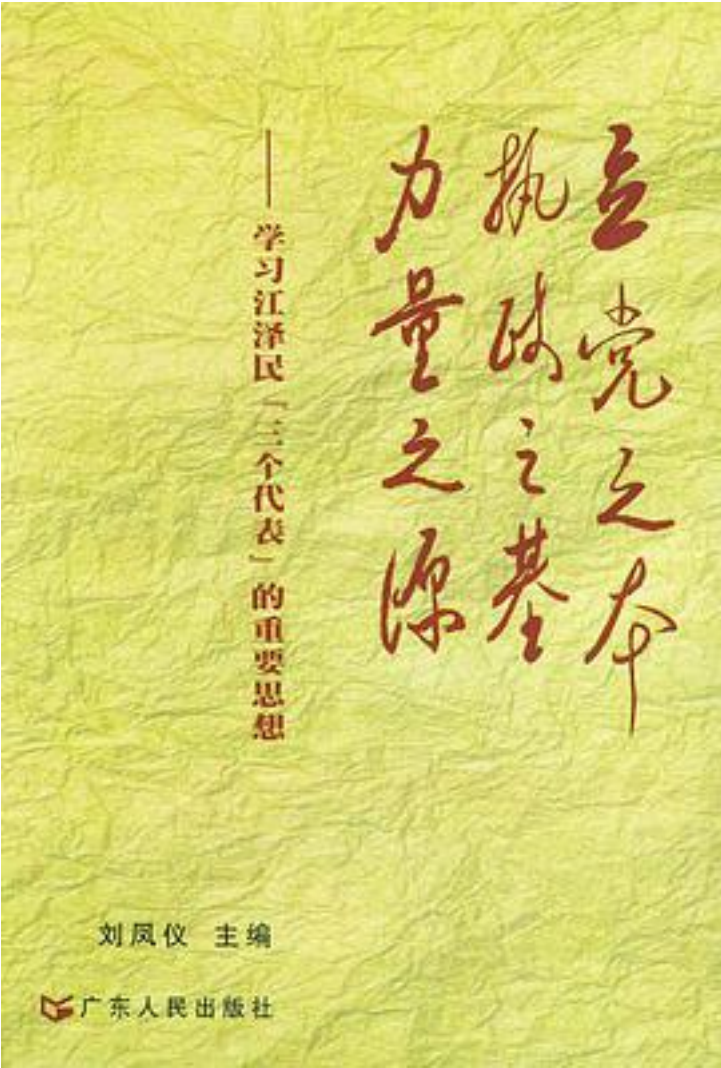 立党之本
执政之基
力量之源
——学习江泽民「三个代表」的重要思想
刘凤仪 主编
广东人民出版社